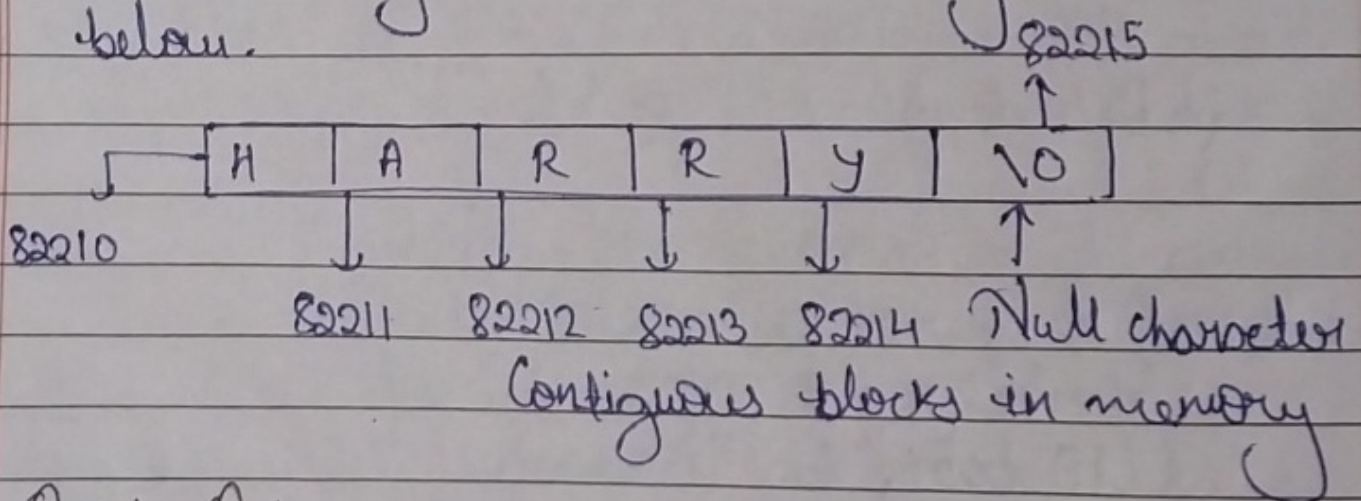 below.
82215
H A R R y \0
82210
82211 82212 82213 82214 Null character
Contiguous blocks in memory